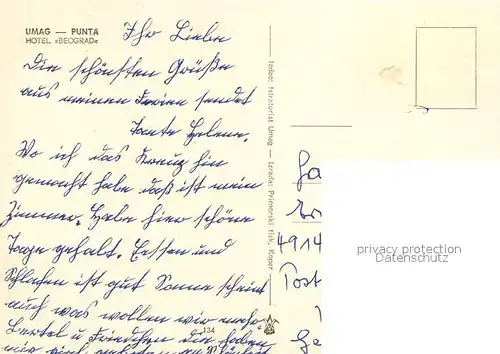 UMAG — PUNTA
HOTEL »BEOGRAD«
Ihr Lieben
Die schönsten Grüße
aus meinen Ferien sendet
Tante Helene.
Wo ich das Kreuz hin
gemacht habe daß ist mein
Zimmer. Habe hier schöne
Tage gehabt. Essen und
Schlafen ist gut Sonne scheint
auch was wollen wir mehr.
u. die haben
Izdao: Istraturist Umag — Izrada: Primorski tisk, Koper
134
4914
privacy protection
Datenschutz